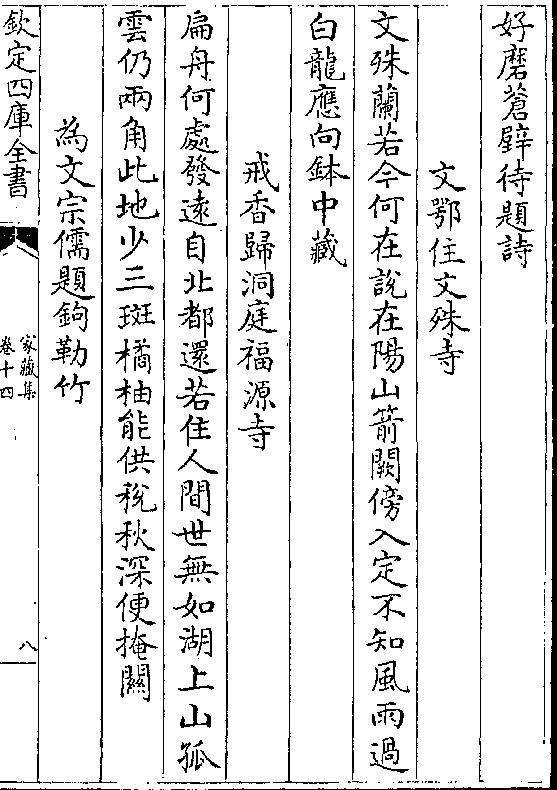 好磨蒼壁待題詩
文鄂住文殊寺
文殊蘭若今何在說在陽山箭闕傍入定不知風雨過
白龍應向鉢中藏
戒香歸洞庭福源寺
扁舟何處發遠自北都還若住人間世無如湖上山孤
雲仍兩角此地少三斑橘柚能供稅秋深便掩關
為文宗儒題鉤勒竹
欽定四庫全書
家藏集
卷十四
八